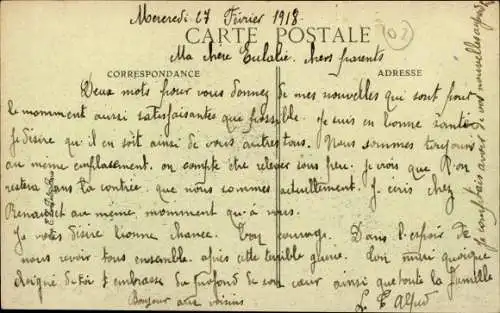 Mercredi 27 Février 1918
CARTE POSTALE
Ma chère Eulalie. chers parents
CORRESPONDANCE
ADRESSE
Deux mots pour vous donnez de mes nouvelles qui sont pour
le momment aussi satisfaisantes que possible. je suis en bonne santé
Je désire qu'il en soit ainsi de vous autres tous. Nous sommes toujours
au meme emplasement. on compte être relever sous peu. Je crois que l'on
restera dans la contrée. que nous sommes actuellement. J'écris chez
Renaudet au meme, momment qu'a nous.
Je vous désire bonne chance. bon courage. Dans l'espoir de
nous revoir tous ensemble. après cette terrible guerre. Ton mari quoique
éloigné de toi t'embrasse du profond de son cœur ainsi que toute la famille
Bonjour aux voisins
Alfred
de vos nouvelles